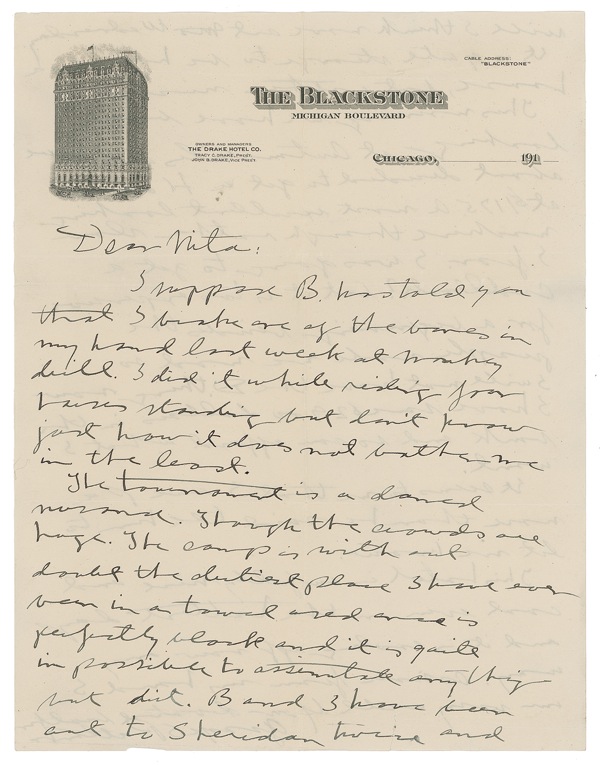 CABLE ADDRESS:
"BLACKSTONE"
THE BLACKSTONE
MICHIGAN BOULEVARD
OWNERS AND MANAGERS
THE DRAKE HOTEL CO.
TRACY C. DRAKE, PREST.
JOHN B. DRAKE, VICE PREST.
CHICAGO, 191
Dear Nita:
I suppose B. has told you
that I broke one of the bones in
my hand last week at monkey
drill. I did it while riding four
horses standing but don't know
just how it does not bother me
in the least.
The tournament is a damed
nusance. Though the crowds are
huge. The camp is with out
doubt the dirtiest place I have ever
been in a towel used once is
perfectly black and it is quite
in possible to assimilate any thing
but dirt. B and I have been
out to Sheridan twice and